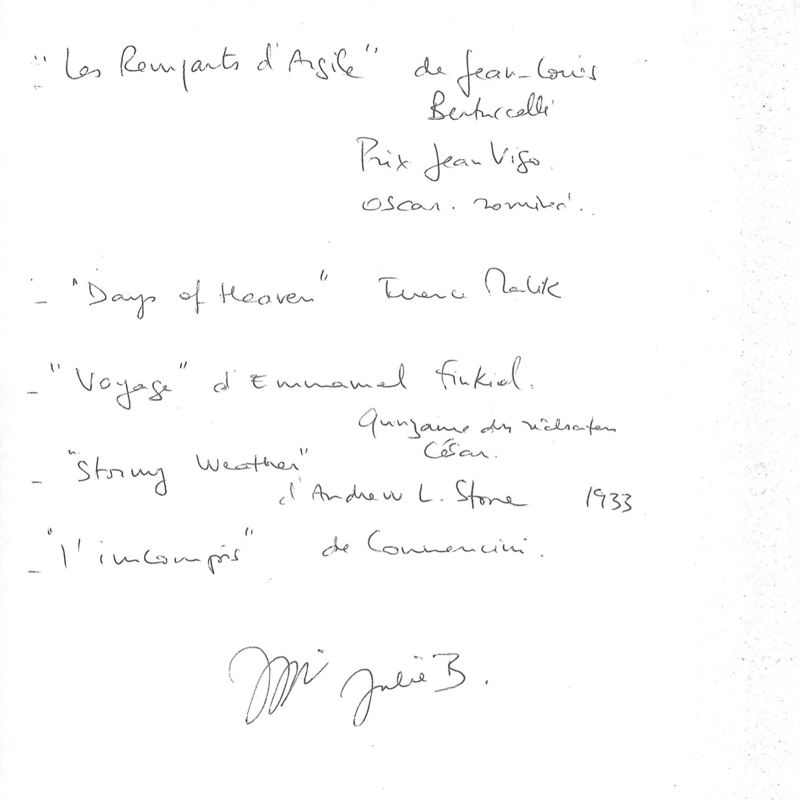 - "Les Remparts d'Argile" de Jean-Louis
Bertuccelli
Prix Jean Vigo.
Oscar. nominé.
- "Days of Heaven" Terence Malik
- "Voyage" d'Emmanuel Finkiel.
Quinzaine des réalisateurs
César.
- "Stormy Weather"
d'Andrew L. Stone 1933
- "l'incompris" de Comencini.
Julie B.